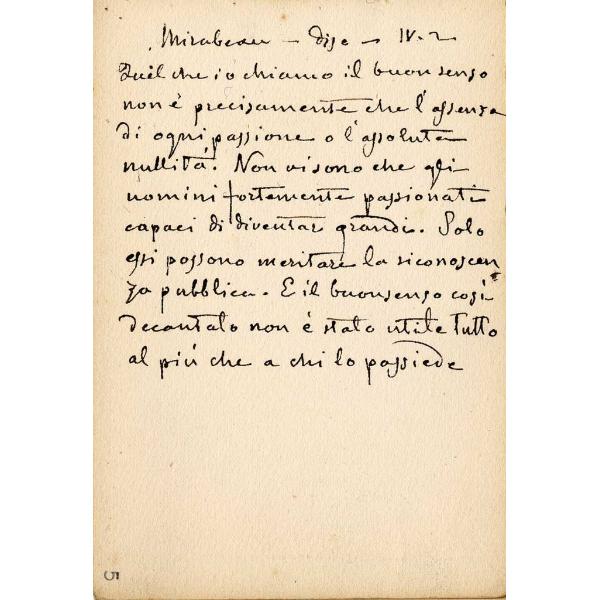 Mirabeau – disc – IV. 2
Quel che io chiamo il buon senso
non è precisamente che l'assenza
di ogni passione o l'assoluta
nullità. Non vi sono che gli
uomini fortemente passionati
capaci di diventar grandi. Solo
essi possono meritare la riconoscen
za pubblica. E il buonsenso così
decantato non è stato utile tutto
al più che a chi lo possiede
5